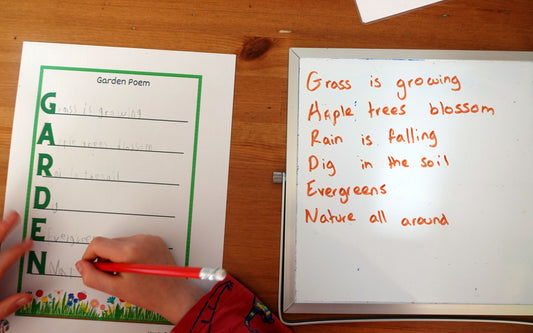 Garden Poem
G rass is growing
A pple trees blossom
R
D
E vergreens
N
Grass is growing
Apple trees blossom
Rain is falling
Dig in the soil
Evergreens
Nature all around